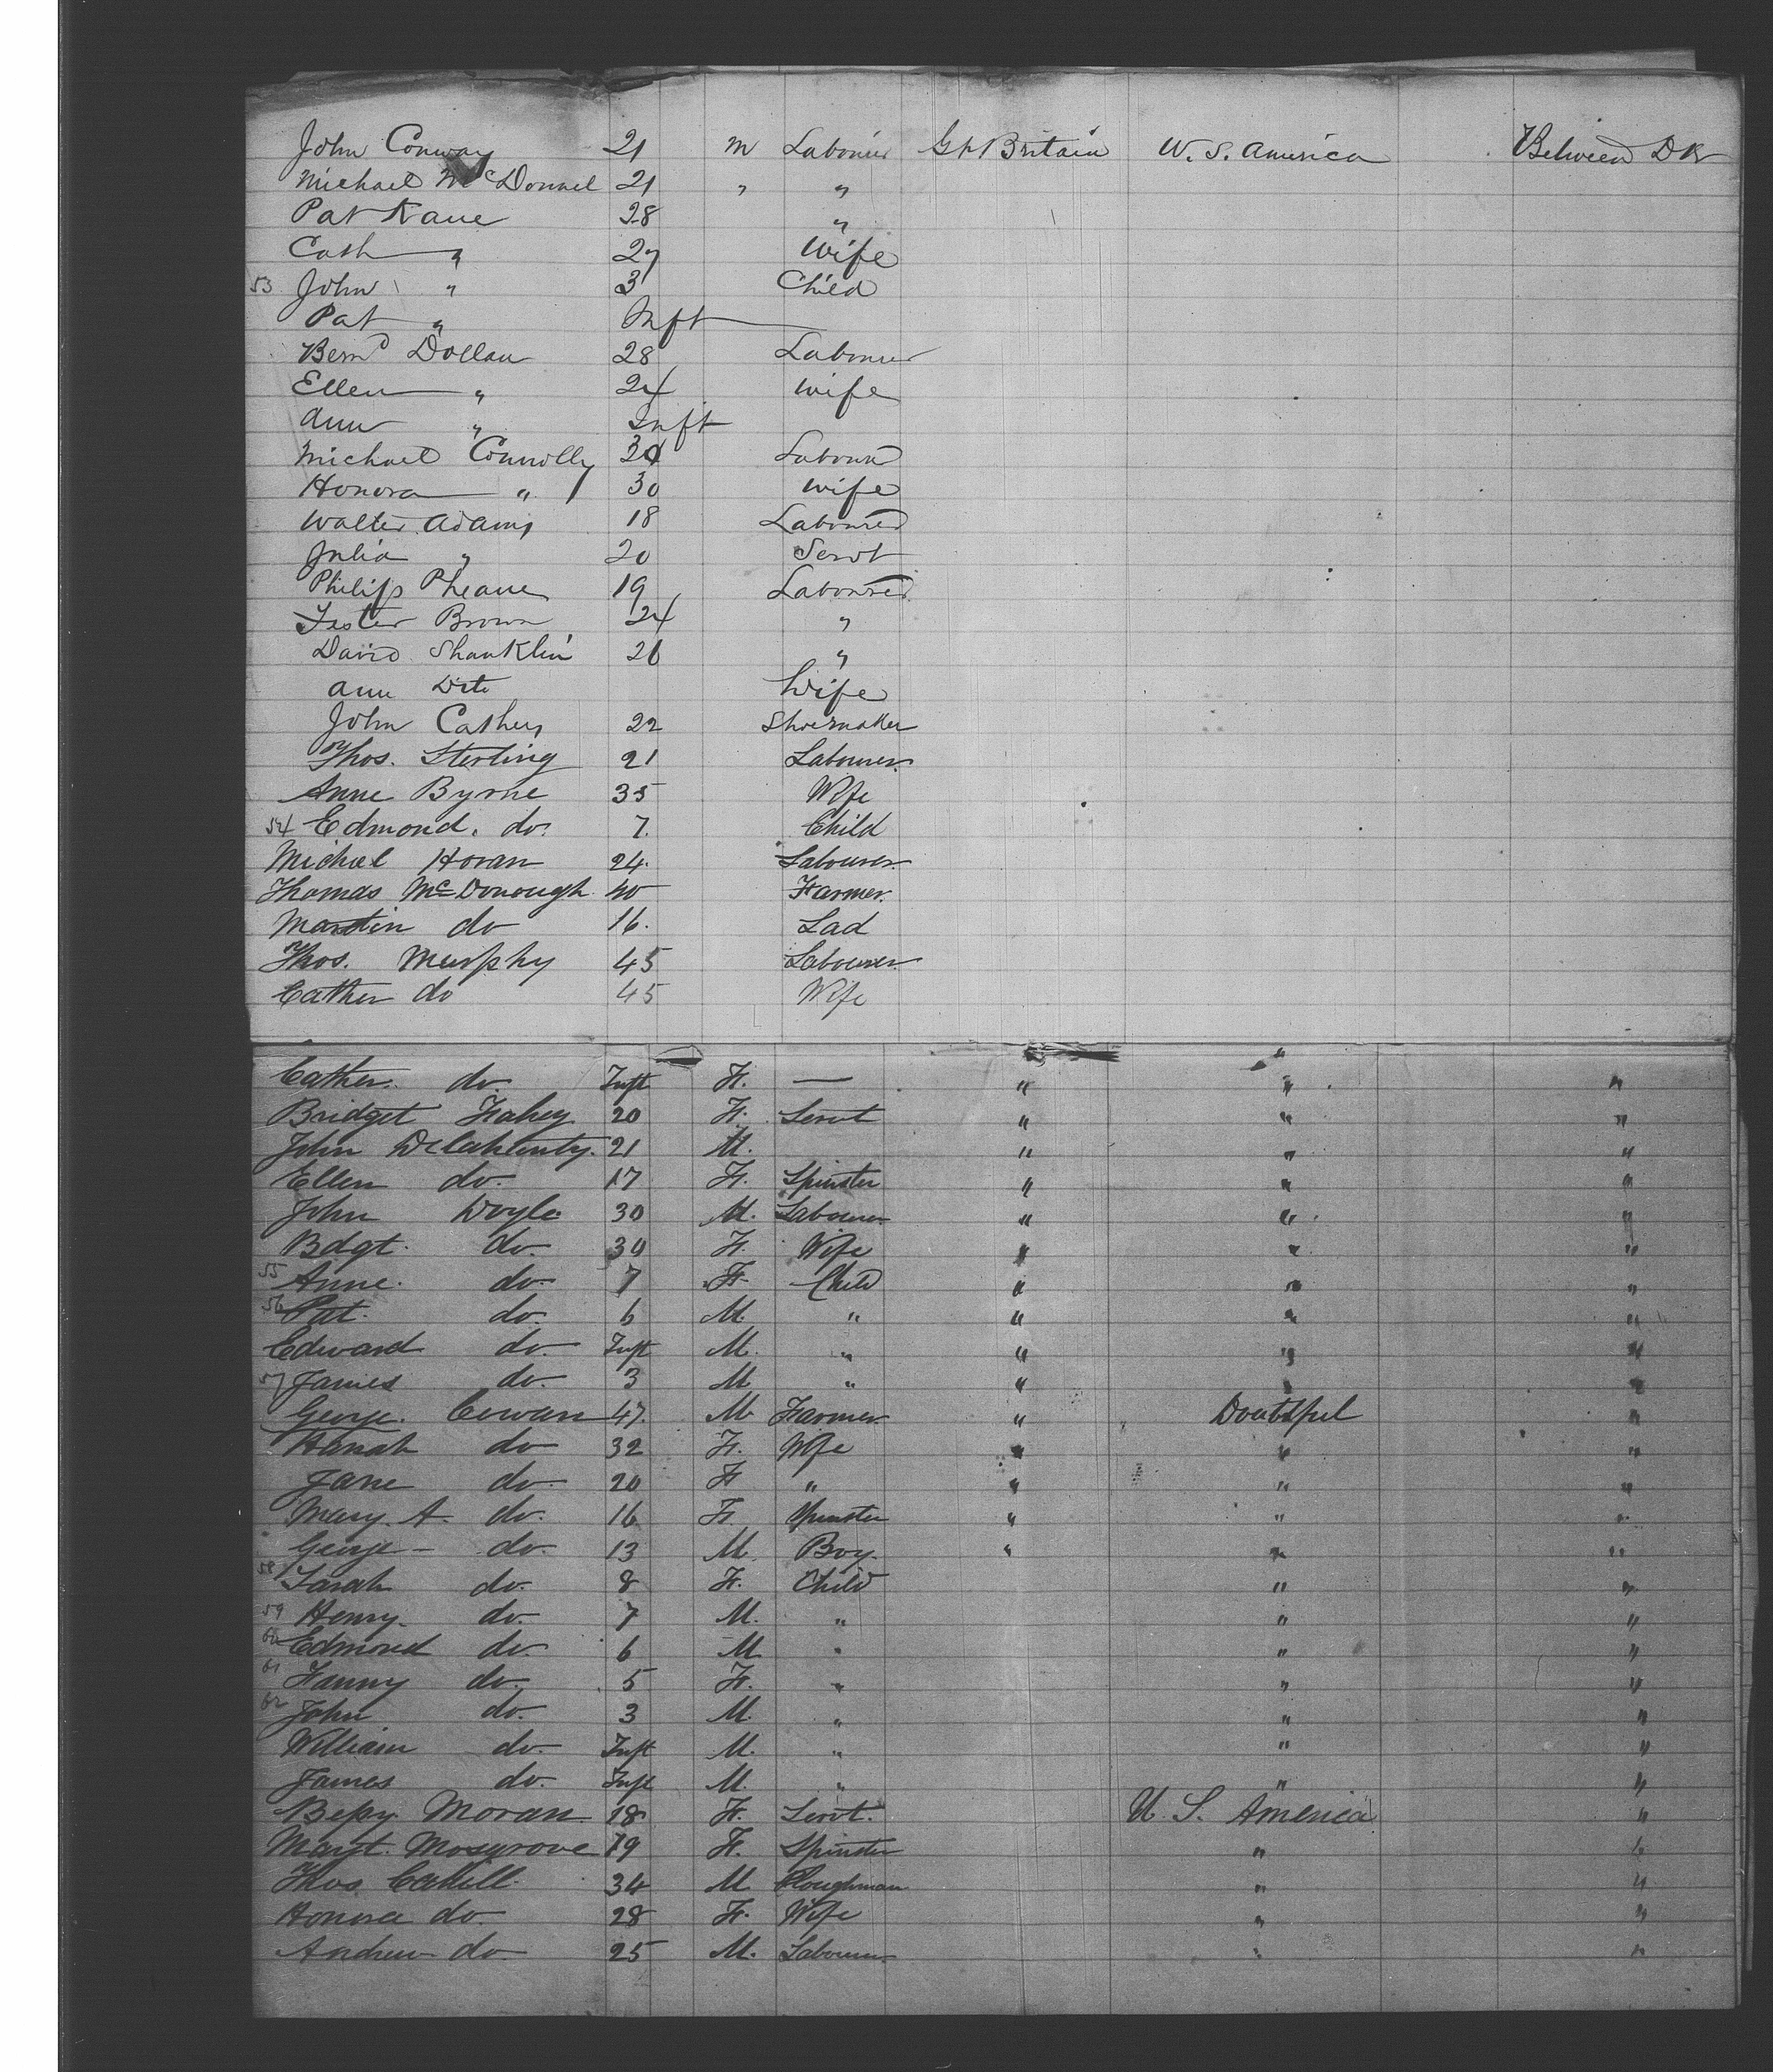 John Conway 21 M Labourer Gt Britain U. S. America Between Dk
Michael McDonnel 21 " "
Pat Kane 28 "
Cath " 27 Wife
53 John " 3 Child
Pat " Inft
Bernd Dollan 28 Labourer
Ellen " 24 Wife
Ann " Inft
Michael Connolly 30 Labourer
Honora " 30 Wife
Walter Adams 18 Labourer
Julia " 20 Servt
Philip Pheane 19 Labourer
Fester Brown 24 "
David Shanklin 26 "
Ann Dito Wife
John Cathers 22 Shoemaker
Thos. Sterling 21 Labourer
Anne Byrne 35 Wife
54 Edmond. do. 7. Child
Michael Horan 24. Labourer
Thomas McDonough 40 Farmer.
Martin do 16. Lad
Thos. Murphy 45 Labourer
Cather do 45 Wife
Cather. do. Inft F. — " " "
Bridget Fahey 20 F. Servt " " "
John Delahunty. 21 M. " " "
Ellen do. 17 F. Spinster " " "
John Doyle 30 M. Labourer " " "
Bdgt. do. 30 F. Wife " " "
55 Anne. do. 7 F. Child " " "
56 Pat. do. 6 M. " " " "
Edward do. Inft M. " " " "
57 James do. 3 M " " " "
George. Cowan 47. M. Farmer " Doubtful "
Hanah do 32 F. Wife " " "
Jane do. 20 F " " " "
Mary. A. do. 16 F. Spinster " " "
George - do. 13 M. Boy. " " "
58 Sarah do. 8 F. Child " "
59 Henry. do. 7 M. " " "
60 Edmond do. 6 M " " "
61 Fanny do. 5 F. " " "
62 John do. 3 M. " " "
William do. Inft M. " " "
James do. Inft M. " " "
Bessy Moran 18 F. Servt. U. S. America "
Margt. Mosgrove 19 F. Spinster " "
Thos. Cahill. 34 M Ploughman " "
Honora do. 28 F. Wife " "
Andrew do 25 M. Labourer " "